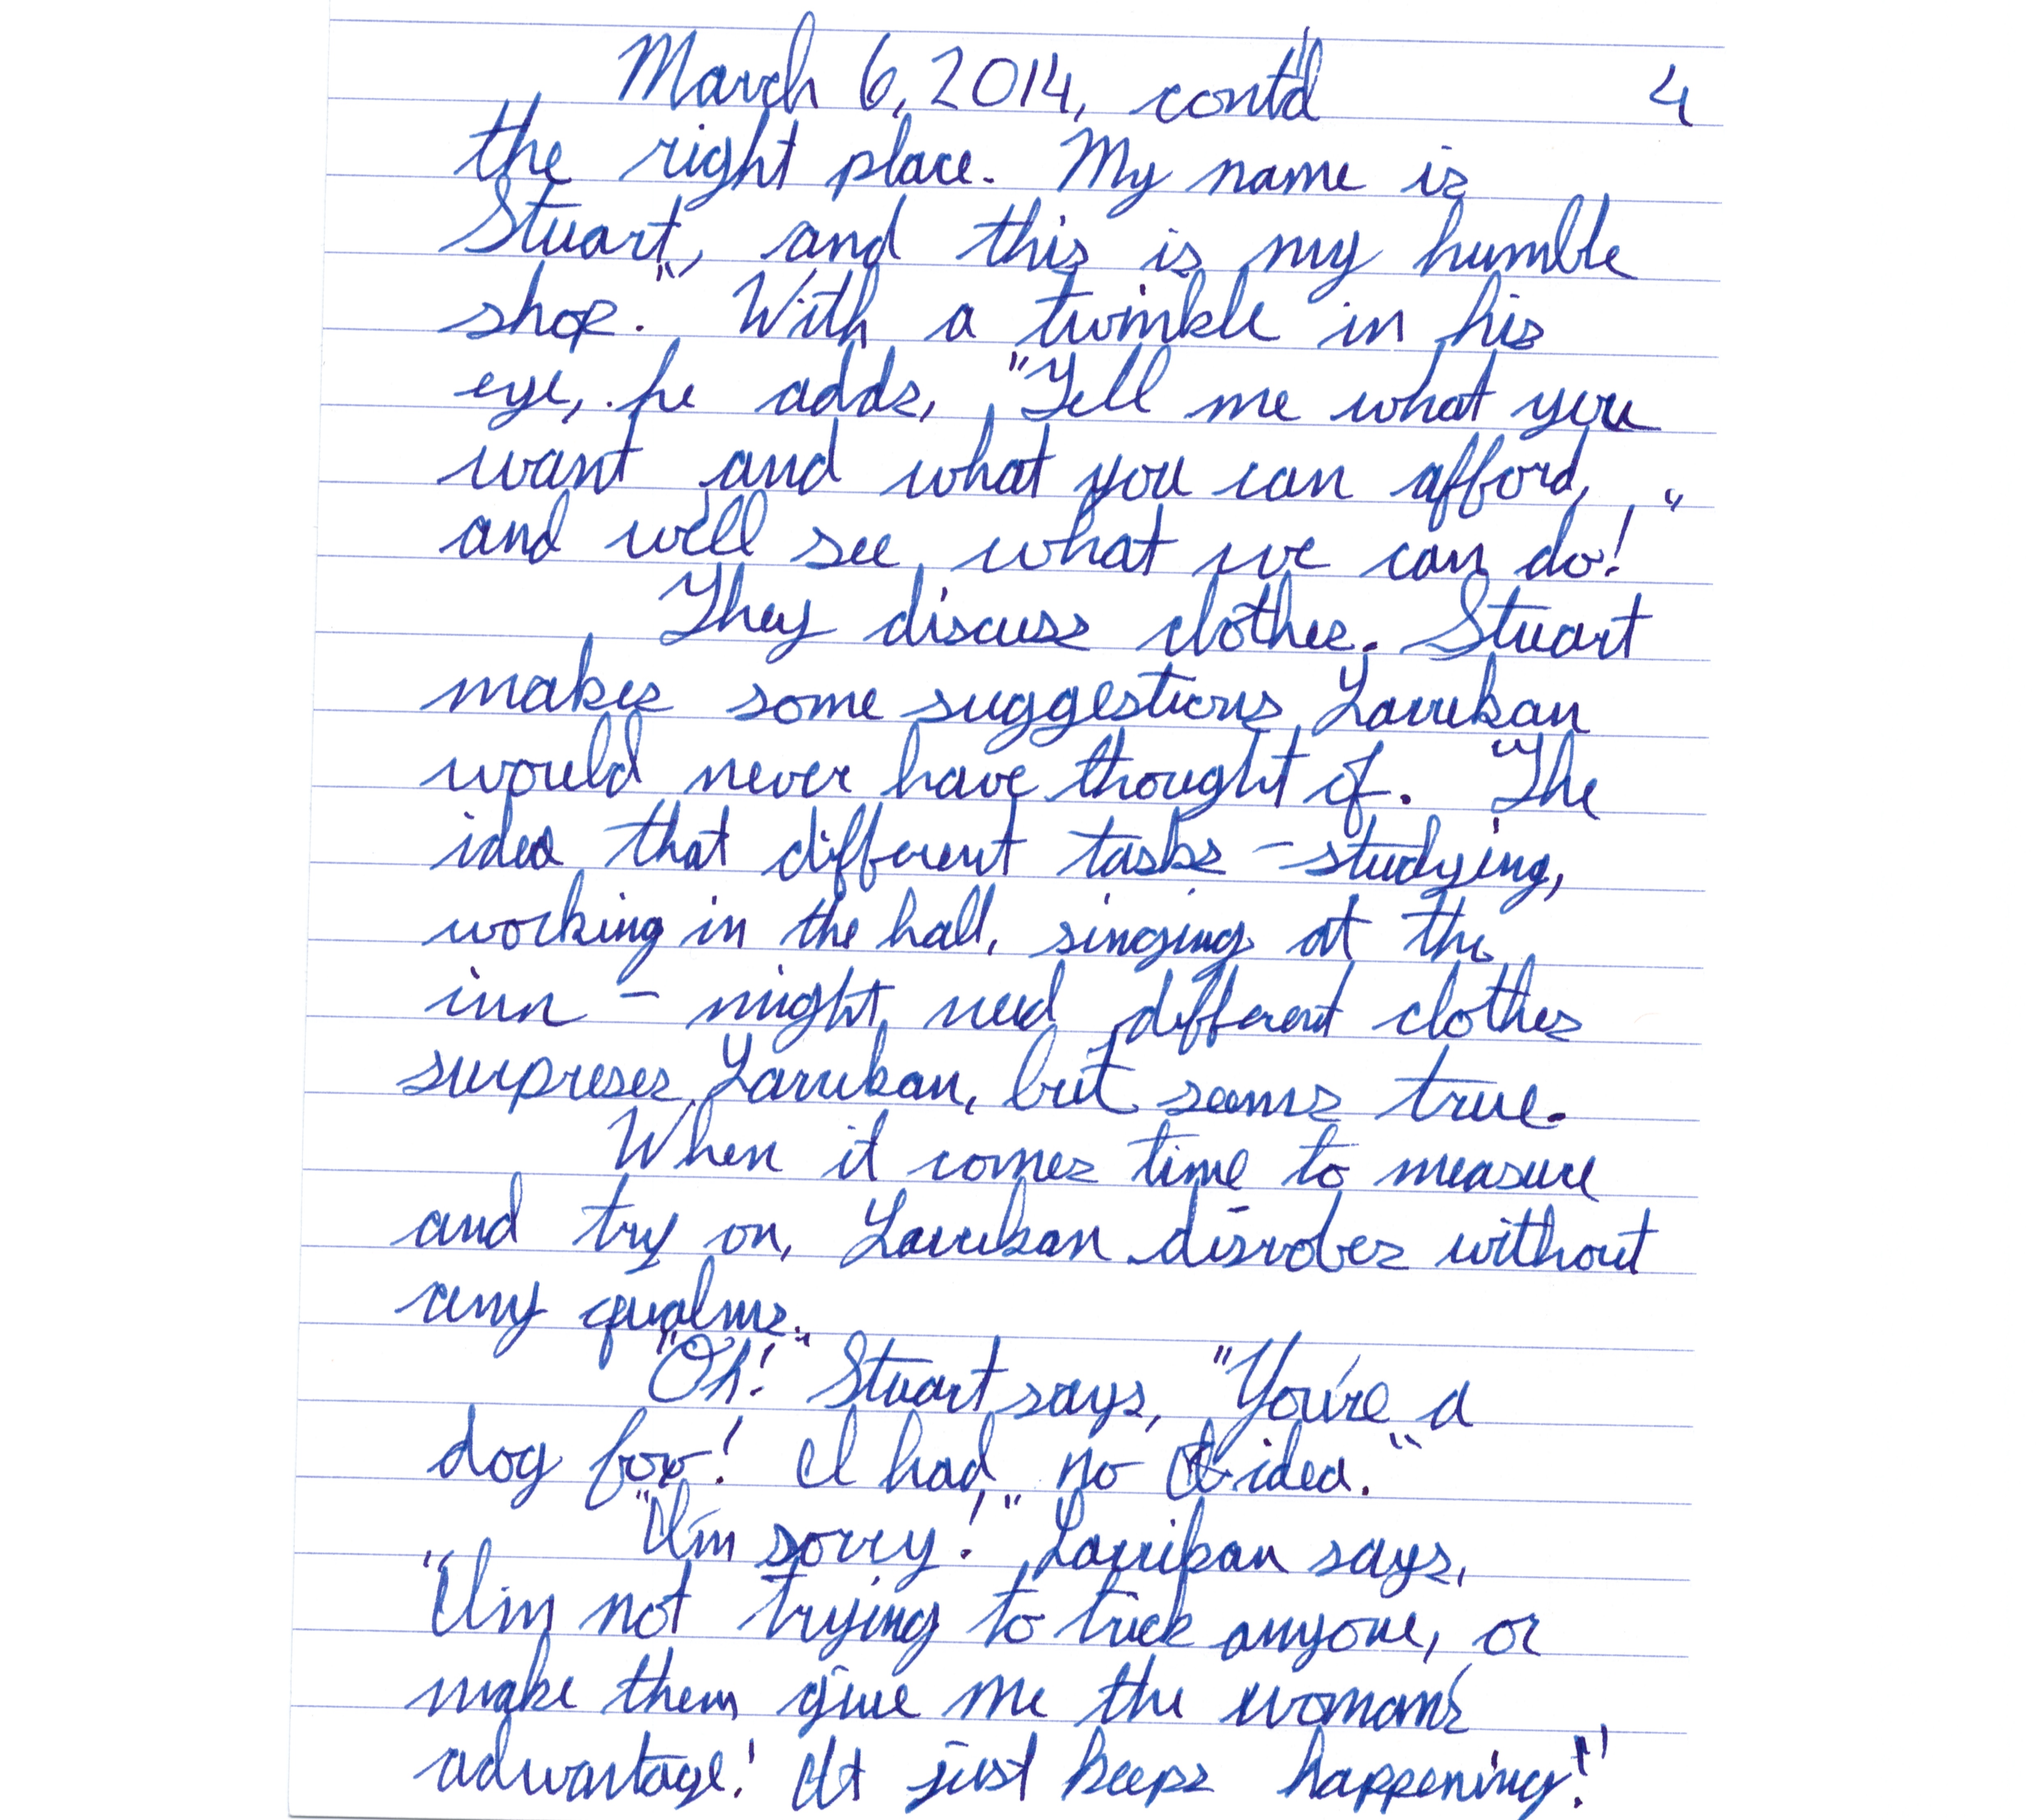 March 6, 2014, cont'd 4
the right place. My name is
Stuart, and this is my humble
shop." With a twinkle in his
eye, he adds, "Tell me what you
want and what you can afford,
and we'll see what we can do!"
They discuss clothes. Stuart
makes some suggestions Larrikan
would never have thought of. The
idea that different tasks - studying,
working in the hall, singing at the
inn - might need different clothes
surprises Larrikan, but seems true.
When it comes time to measure
and try on, Larrikan disrobes without
any qualms.
"Oh!" Stuart says, "You're a
dog fox! I had no idea."
"I'm sorry!" Larrikan says,
"I'm not trying to trick anyone, or
make them give me the woman's
advantage! It just keeps happening!"